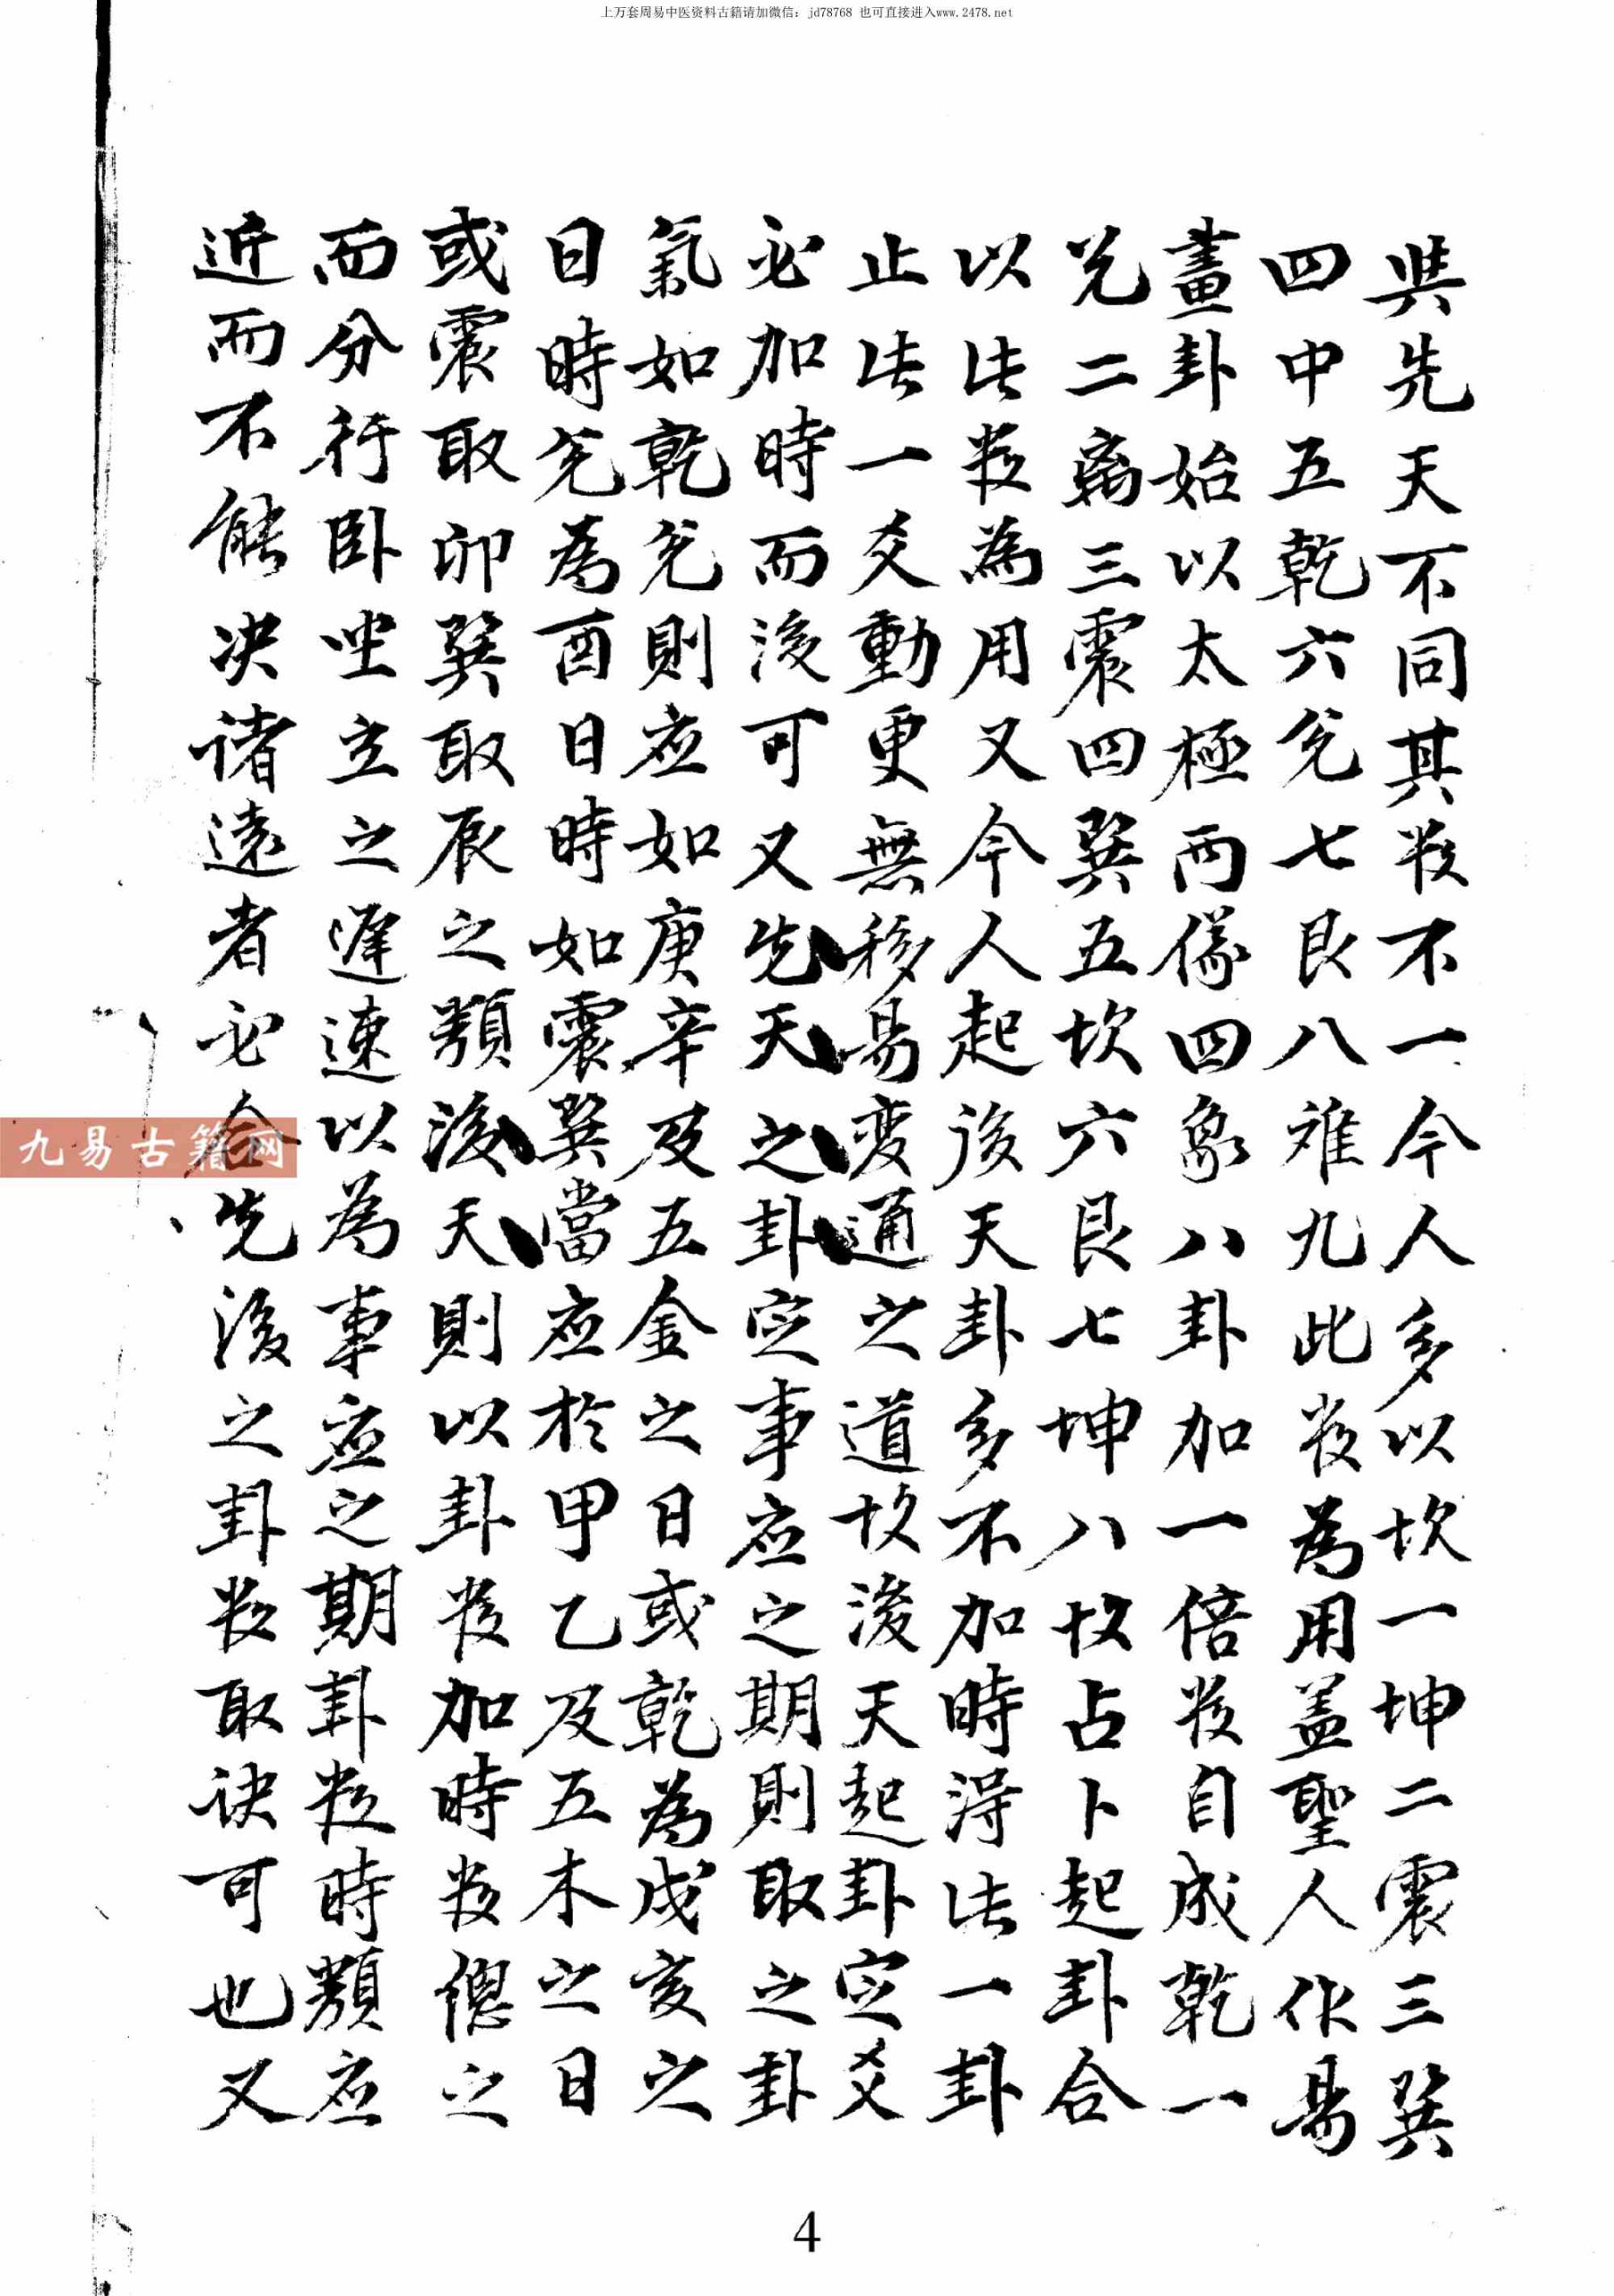 上万套周易中医资料古籍请加微信：jd78768 也可直接进入www.2478.net
與先天不同其数不一今人多以坎一坤二震三巽
四中五乾六兑七艮八难九此数為用盖聖人作易
畫卦始以太極两儀四象八卦加一倍数自成乾一
兑二离三震四巽五坎六艮七坤八故占卜起卦合
以此数為用又今人起後天卦多不加時得此一卦
止此一爻動更無移易变通之道故後天起卦定爻
必加時而後可又先天之卦定事应之期則取之卦
氣如乾兑則应如庚辛及五金之日或乾為戌亥之
日時兑為酉日時如震巽當应於甲乙及五木之日
或震取卯巽取辰之類後天則以卦数加時数總之
而分行卧坐立之遲速以為事应之期卦数時類应
近而不能决诸遠者必合先後之卦数取诀可也又
九易古籍网
4